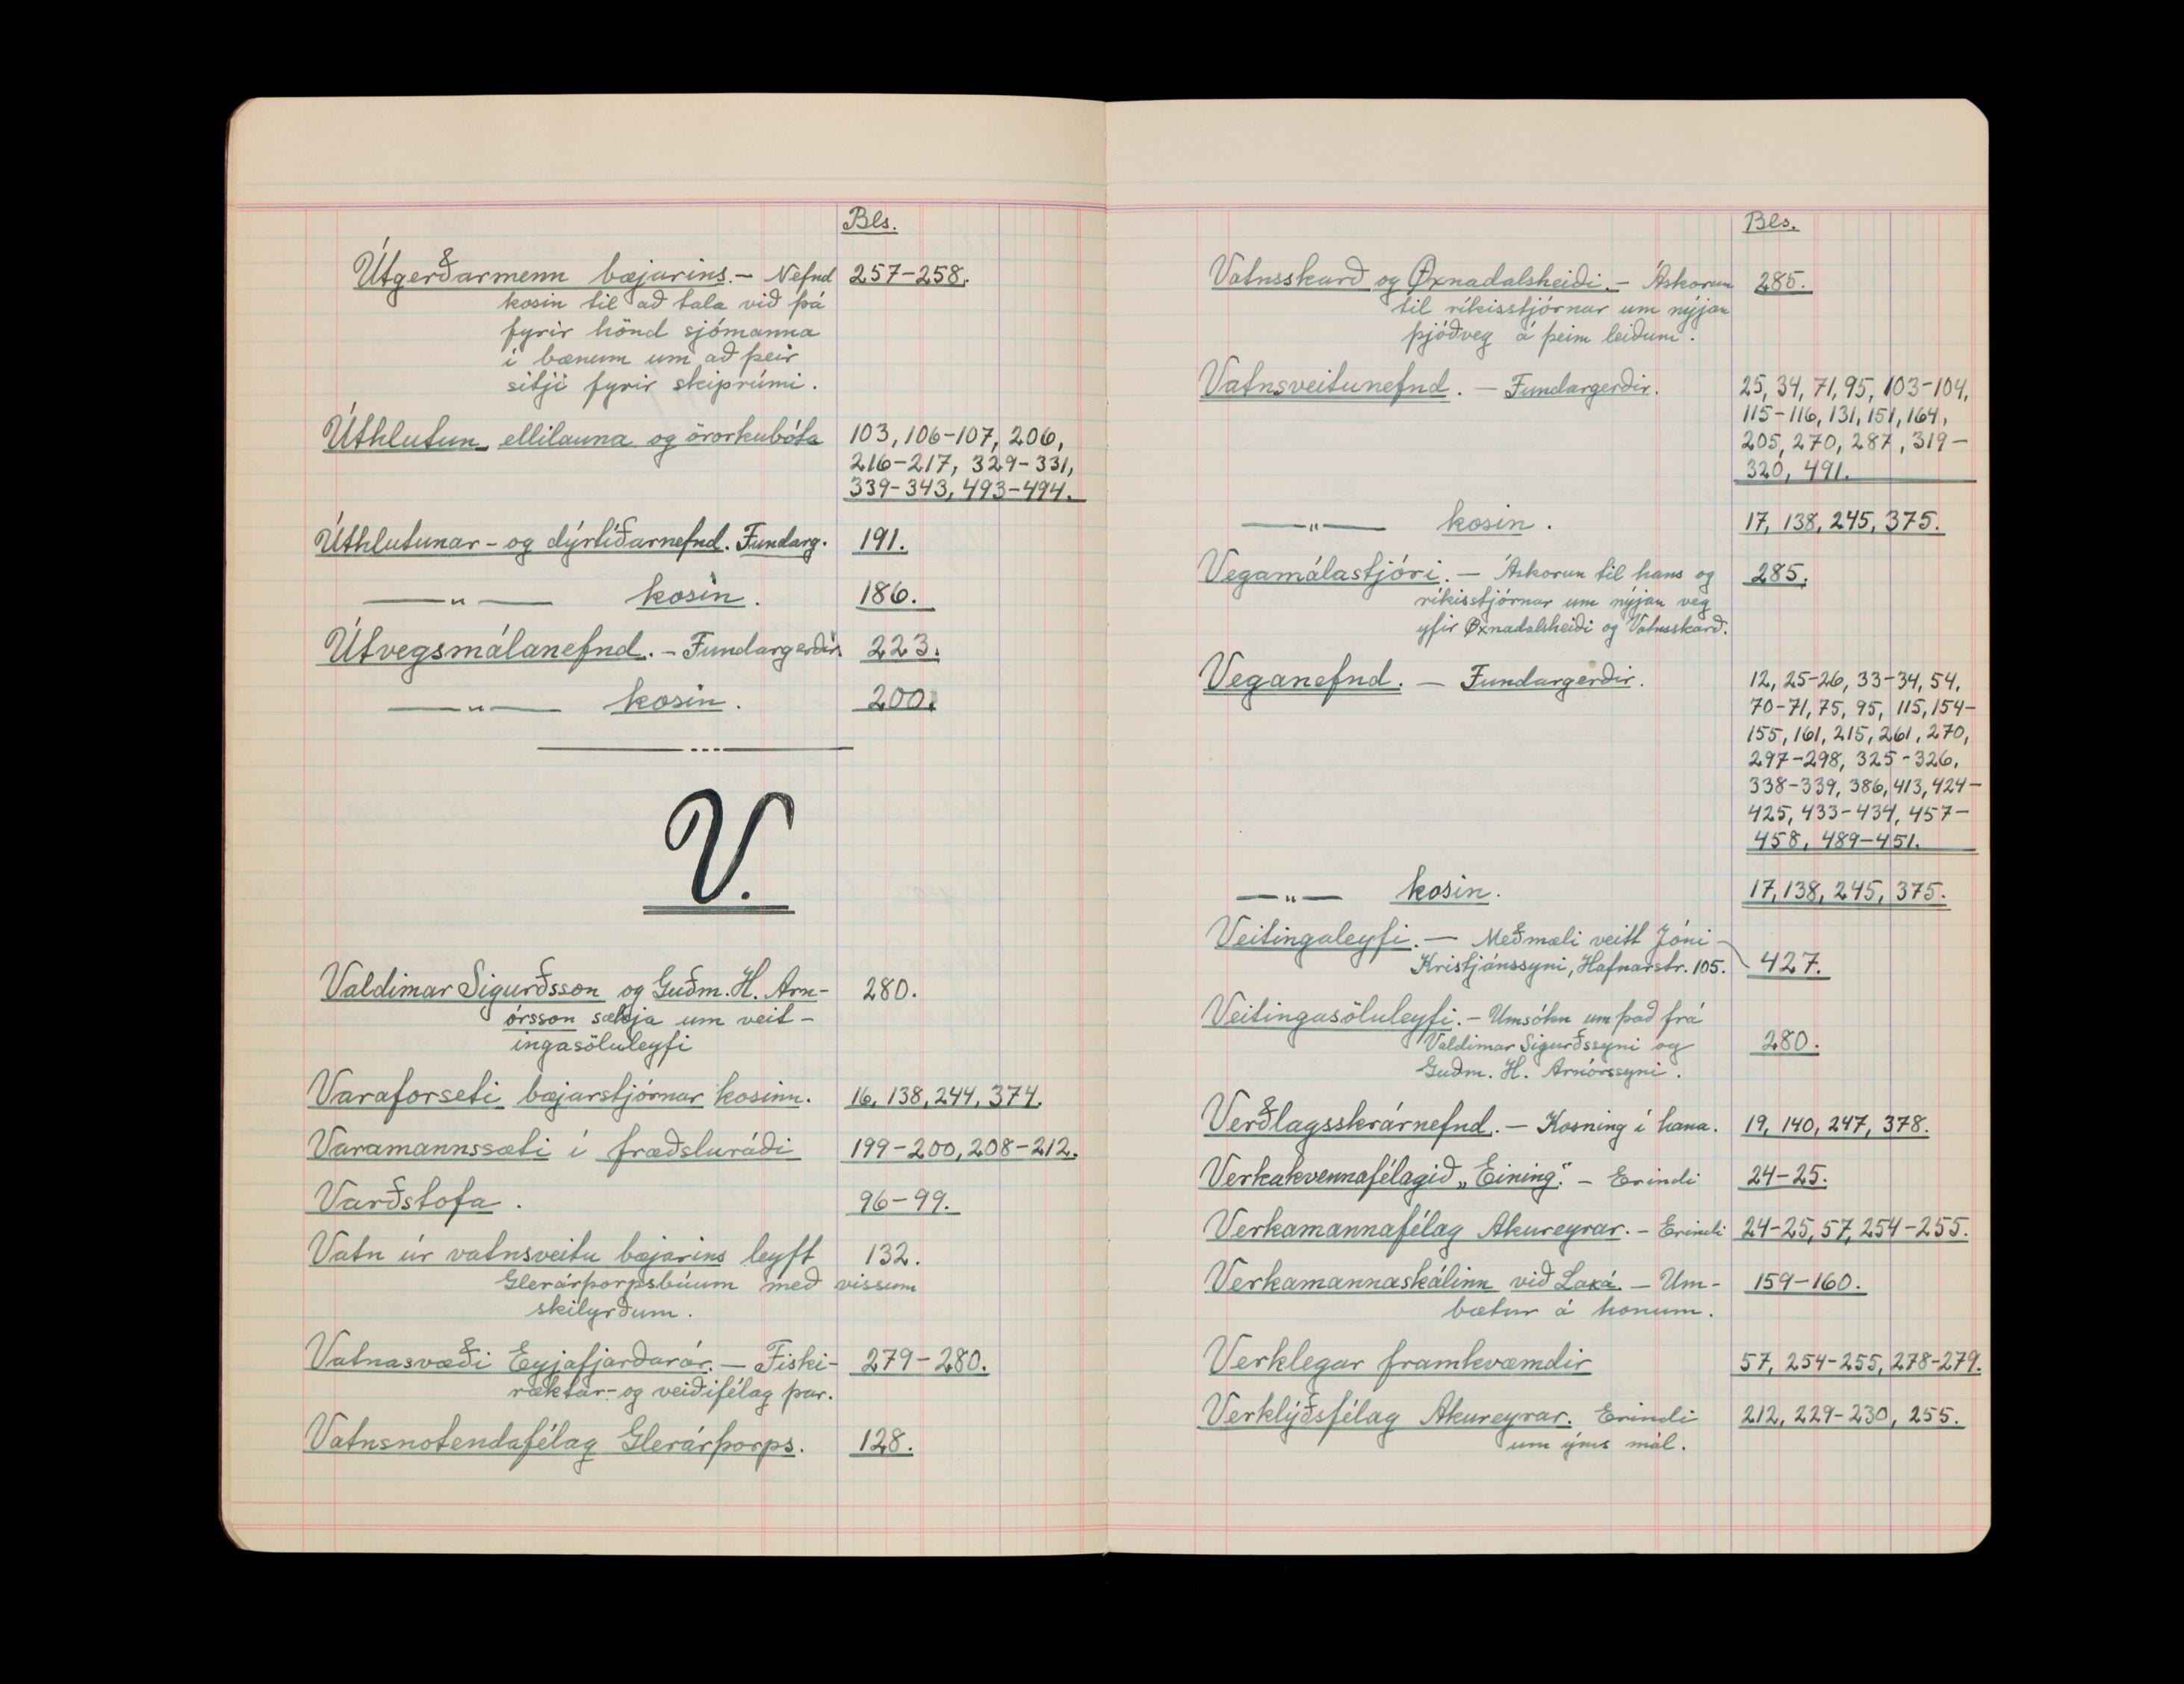 Bls.
Útgerðarmenn bæjarins. — Nefnd 257-258.
kosin til að tala við þá
fyrir hönd sjómanna
í bænum um að þeir
sitji fyrir skiprúmi.
Úthlutun ellilauna og örorkubóta 103, 106-107, 206,
216-217, 329-331,
339-343, 493-494.
Úthlutunar- og dýrtíðarnefnd. Fundarg. 191.
—„— kosin. 186.
Útvegsmálanefnd. - Fundargerðir. 223.
—„— kosin. 200.
V.
Valdimar Sigurðsson og Guðm. H. Arn- 280.
órsson sækja um veit-
ingasöluleyfi
Varaforseti bæjarstjórnar kosinn. 16, 138, 244, 374.
Varamannssæti í fræðsluráði 199-200, 208-212.
Varðstofa. 96-99.
Vatn úr vatnsveitu bæjarins leyft 132.
Glerárþorpsbúum með vissum
skilyrðum.
Vatnasvæði Eyjafjarðarár. — Fiski- 279-280.
ræktar- og veiðifélag þar.
Vatnsnotendafélag Glerárþorps. 128.
Bls.
Vatnsskarð og Øxnadalsheiði. - Áskorun 285.
til ríkisstjórnar um nýjan
þjóðveg á þeim leiðum.
Vatnsveitunefnd. — Fundargerðir. 25, 34, 71, 95, 103-104,
115-116, 131, 151, 164,
205, 270, 287, 319-
320, 491.
—„— kosin. 17, 138, 245, 375.
Vegamálastjóri. — Áskorun til hans og 285.
ríkisstjórnar um nýjan veg
yfir Øxnadalsheiði og Vatnsskarð.
Veganefnd. — Fundargerðir. 12, 25-26, 33-34, 54,
70-71, 75, 95, 115, 154-
155, 161, 215, 261, 270,
297-298, 325-326,
338-339, 386, 413, 424-
425, 433-434, 457-
458, 489-451.
—„— kosin. 17, 138, 245, 375.
Veitingaleyfi. — Meðmæli veitt Jóni
Kristjánssyni, Hafnarstr. 105. 427.
Veitingasöluleyfi. - Umsókn um það frá
Valdimar Sigurðssyni og 280.
Guðm. H. Arnórssyni.
Verðlagsskrárnefnd. — Kosning í hana. 19, 140, 247, 378.
Verkakvennafélagið „Eining“. - Erindi 24-25.
Verkamannafélag Akureyrar. - Erindi 24-25, 57, 254-255.
Verkamannaskálinn við Laxá. — Um- 159-160.
bætur á honum.
Verklegar framkvæmdir 57, 254-255, 278-279.
Verklýðsfélag Akureyrar. Erindi 212, 229-230, 255.
um ýms mál.